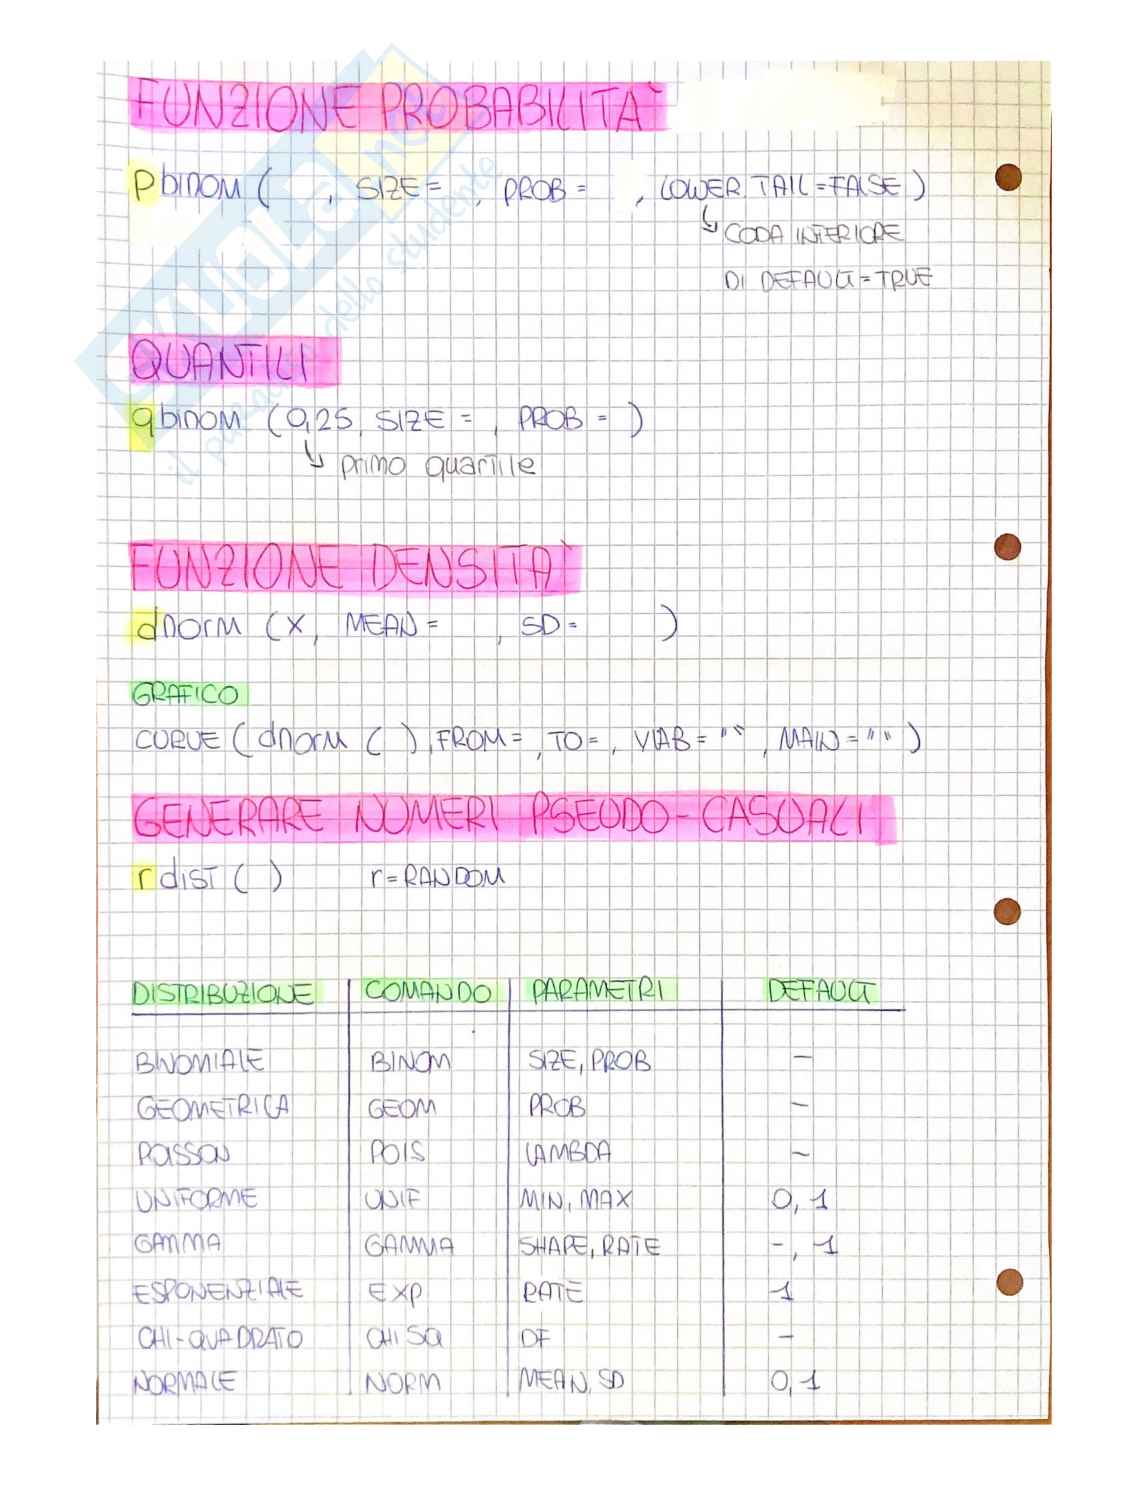 FUNZIONE PROBABILITÀ
pbinom ( , SIZE= , PROB= , LOWER.TAIL=FALSE )
↳ CODA INFERIORE
DI DEFAULT=TRUE
QUANTILI
qbinom (0,25, SIZE= , PROB= )
↳ primo quartile
FUNZIONE DENSITÀ
dnorm (X, MEAN= , SD= )
GRAFICO
CURVE (dnorm ( ), FROM= , TO= , YLAB="" , MAIN="" )
GENERARE NUMERI PSEUDO-CASUALI
rdist ( ) r=RANDOM
DISTRIBUZIONE COMANDO PARAMETRI DEFAULT
BINOMIALE BINOM SIZE, PROB –
GEOMETRICA GEOM PROB –
POISSON POIS LAMBDA –
UNIFORME UNIF MIN, MAX 0, 1
GAMMA GAMMA SHAPE, RATE -, 1
ESPONENZIALE EXP RATE 1
CHI-QUADRATO CHISQ DF –
NORMALE NORM MEAN, SD 0, 1